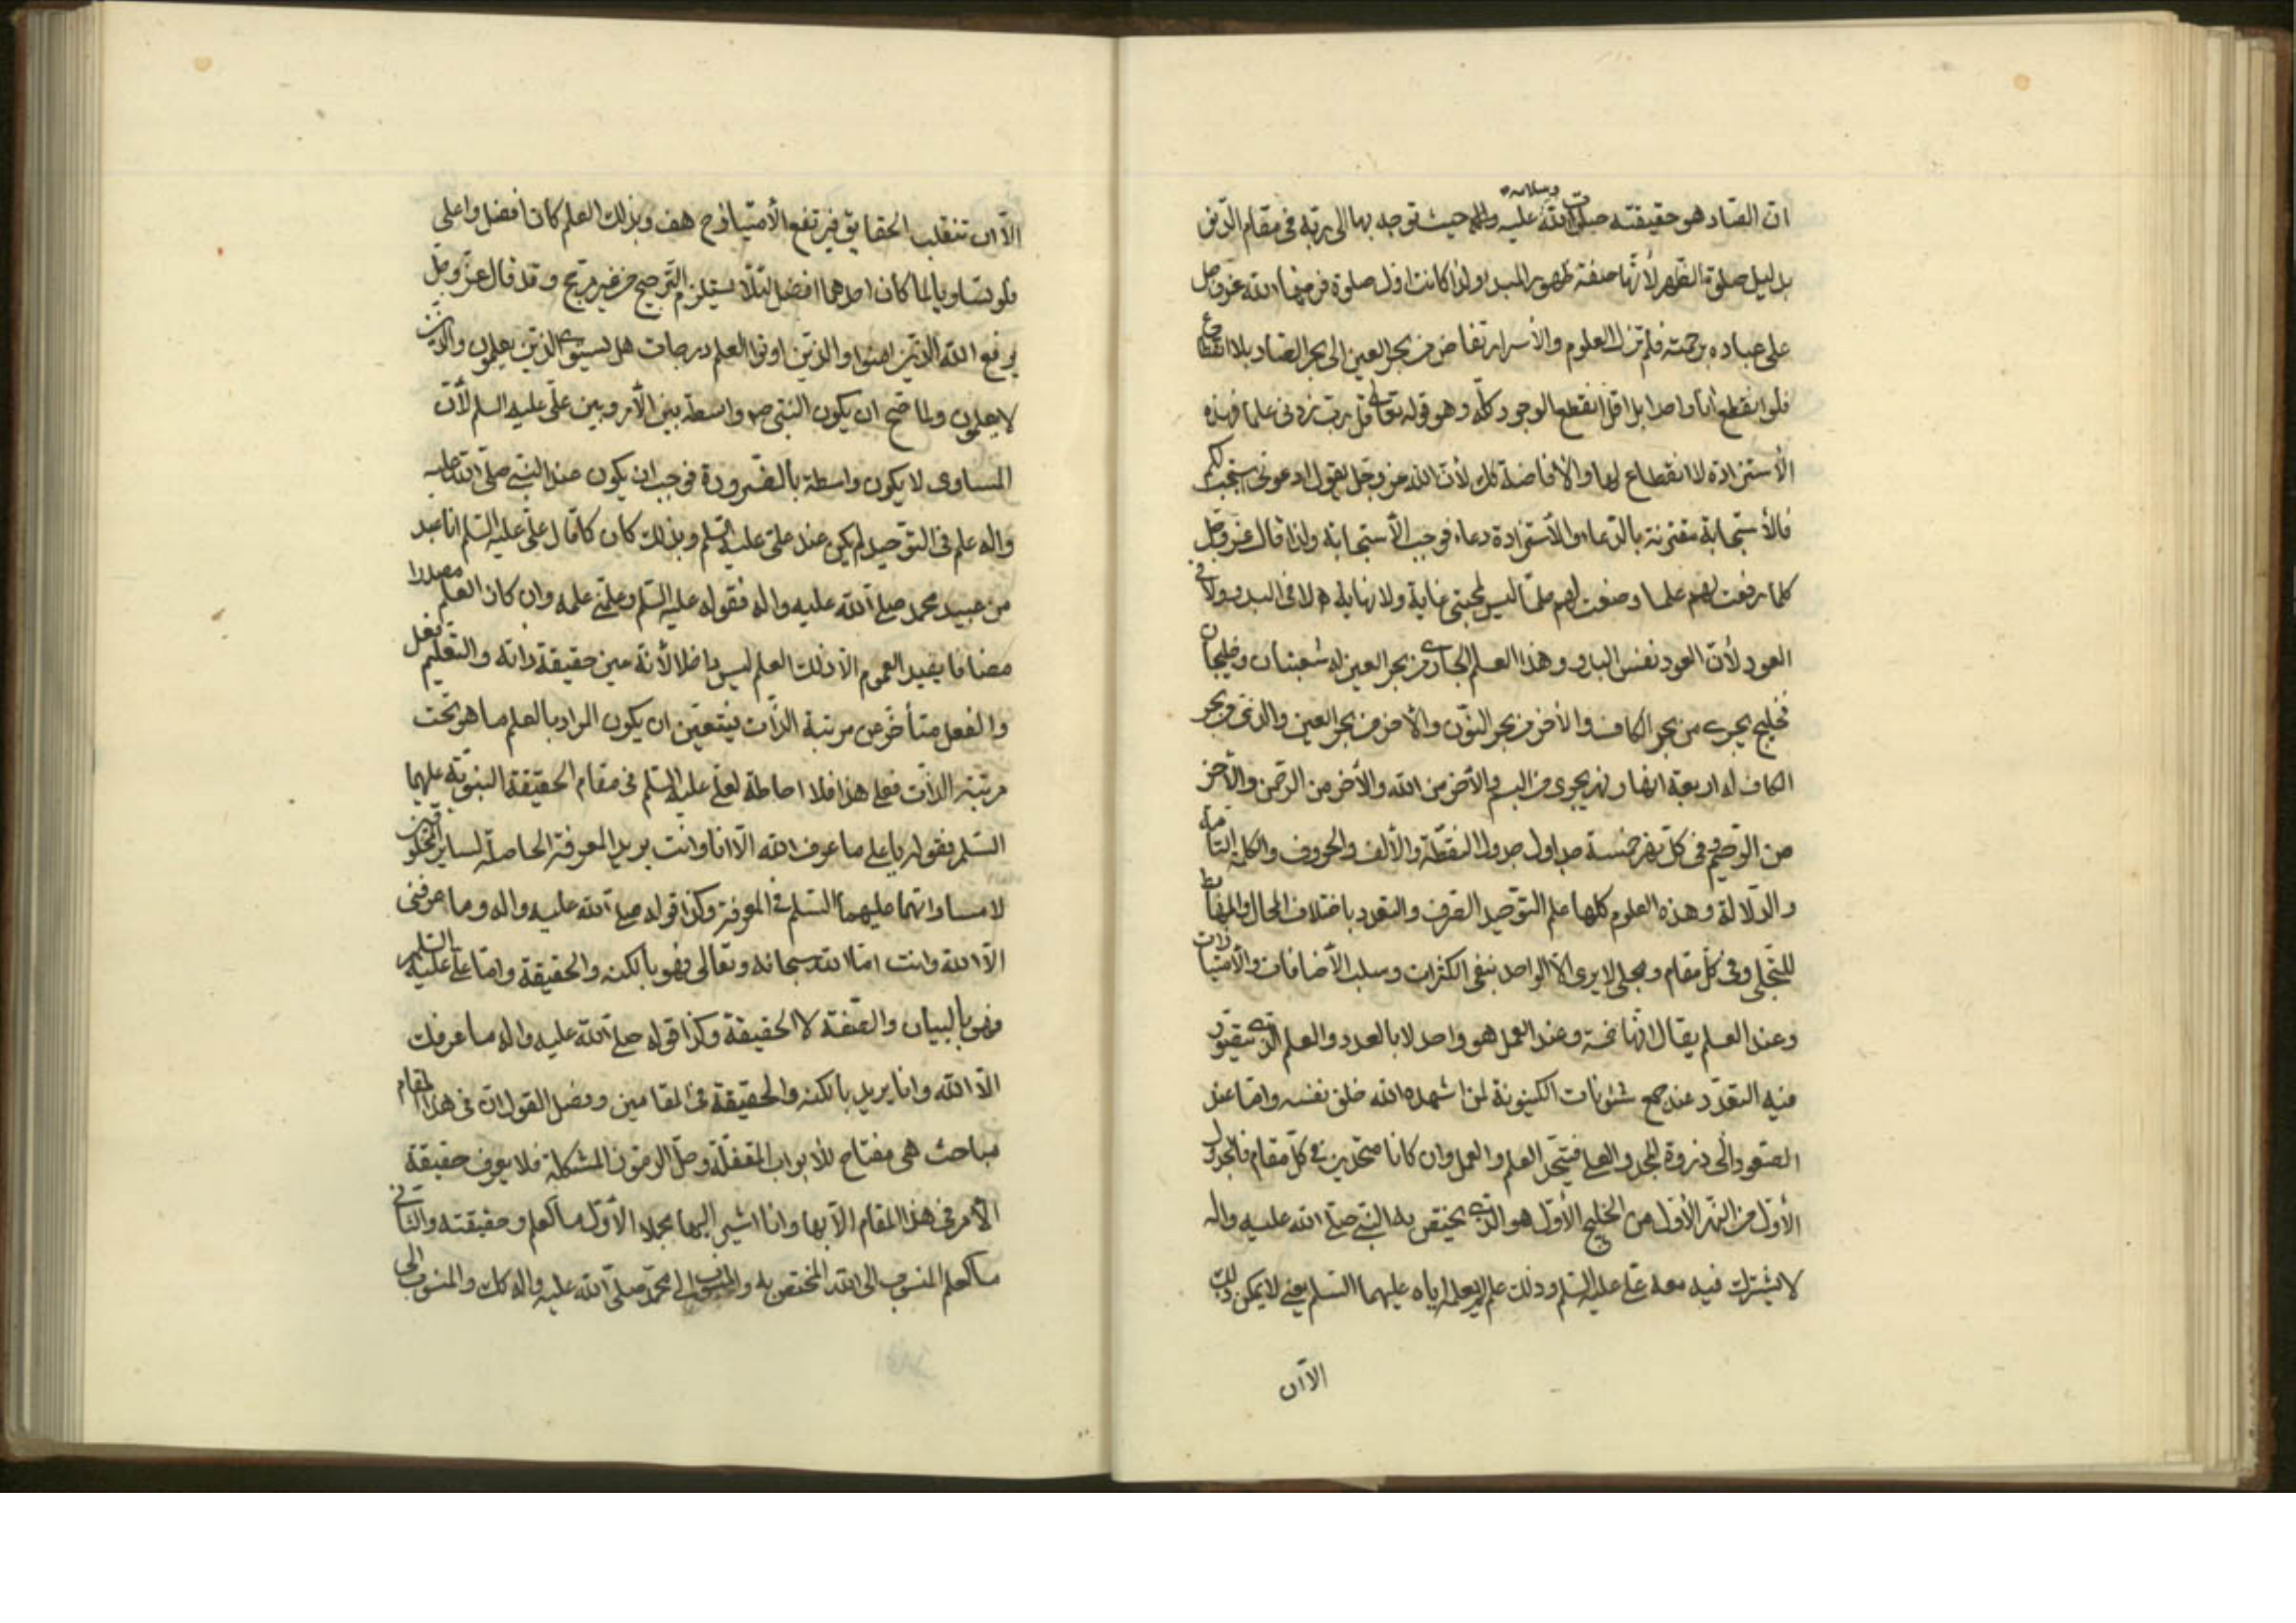 ان الصاد هو حقيقته صلوات الله وسلامه عليه واله حيث توجه بها الى ربه في مقام التدني
بدليل صلوة الظهر لأنها صفة ظهور المبدء ولذا كانت اول صلوة فرضها الله عز وجل
على عباده برحمته فلم تزل العلوم والأسرار تفاض من بحر العين الى بحر الصاد بلا انقطاع
فلو انقطع انا واحدا بل اقل انقطع الوجود كله وهو قوله تعالى قل رب زدني علما فهذه
الأستزادة لا انقطاع لها والافاضة كك لأن الله عز وجل يقول ادعوني استجب لكم
فالأستجابة مقترنة بالدعاء والأستزادة دعاء فوجب الأستجابة ولذا قال عز وجل
كلما رفعت لهم علما وضعت لهم حلما ليس لمحبتي غاية ولا نهاية لا في البدء ولا في
العود لأن العود نفس البدء وهذا العلم الجاري من بحر العين له شعبتان وخليجان
خليج يجري من بحر الكاف والأخر من بحر النون والأخر من بحر العين والذي من بحر
الكاف له اربعة انهار نهر يجري من البسم والأخر من الله والأخر من الرحمن والأخر
من الرحيم وفي كل نهر خمسة جداول جدول النقطة والألف والحروف والكلمة التامة
والدلالة وهذه العلوم كلها علم التوحيد الصرف والتعدد باختلاف المحال والمهابط
للتجلي وفي كل مقام ومجلى لا يرى الا الواحد بنفى الكثرات وسلب الأضافات والأمتيازات
وعند العلم يقال انها خمسة وعند العمل هو واحد لا بالعدد والعلم الذي يتصور
فيه التعدد عند جمع شئونات الكينونة لمن اشهده الله خلق نفسه واما عند
الصعود الى ذروة المجد والعلى فيتحد العلم والعمل وان كانا متحدين في كل مقام فالجدول
الأول من النهر الأول من الخليج الأول هو الذي يختص به النبي صلى الله عليه واله
لا يشترك فيه معه علي عليه السلم وذلك علم لم يعلمه اياه عليهما السلم يعني لا يمكن ذلك
الا ان
الا ان تنقلب الحقايق فيرتفع الأمتياز وح هف وبذلك العلم كان افضل واعلى
فلو تساويا لما كان احدهما افضل لئلا يستلزم الترجيح من غير مرجح وقد قال عز وجل
يرفع الله الذين امنوا والذين اوتوا العلم درجات هل يستوي الذين يعلمون والذين
لا يعلمون ولما صح ان يكون النبي ص واسطة بين الأمر وبين علي عليه السلم لأن
المساوي لا يكون واسطة بالضرورة فوجب ان يكون عند النبي صلى الله عليه
واله علم في التوحيد لم يكن عند علي عليه السلم وبذلك كان كما قال علي عليه السلم انا عبد
من عبيد محمد صلى الله عليه واله فقوله عليه السلم وعلمني علمه وان كان العلم مصدرا
مضافا يفيد العموم الا ذلك العلم ليس داخلا لأنه عين حقيقة ذاته والتعليم فعل
والفعل متأخر عن مرتبة الذات فيتعين ان يكون المراد بالعلم ما هو تحت
مرتبة الذات فعلى هذا فلا احاطة لعلي عليه السلم في مقام الحقيقة النبوية عليهما
السلم فقوله يا علي ما عرف الله الا انا وانت يريد المعرفة الحاصلة لساير المخلوقين
لا مساواتهما عليهما السلم في المعرفة وكذا قوله صلى الله عليه واله وما عرفني
الا الله وانت اما الله سبحانه وتعالى فهو بالكنه والحقيقة واما علي عليه السلم
فهو بالبيان والصفة لا الحقيقة وكذا قوله صلى الله عليه واله ما عرفك
الا الله وانا يريد بالكنه والحقيقة في المقامين وفصل القول ان في هذا المقام
مباحث هي مفتاح للأبواب المقفلة وحل الرموز المشكلة فلا يعرف حقيقة
الأمر في هذا المقام الا بها وانا اشير اليها مجملا الأول ما العلم وحقيقته والثاني
ما العلم المنسوب الى الله المختص به والمنسوب الى محمد صلى الله عليه واله كك والمنسوب الى